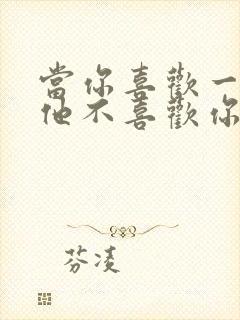 當你喜歡一
他不喜歡你
芬凌